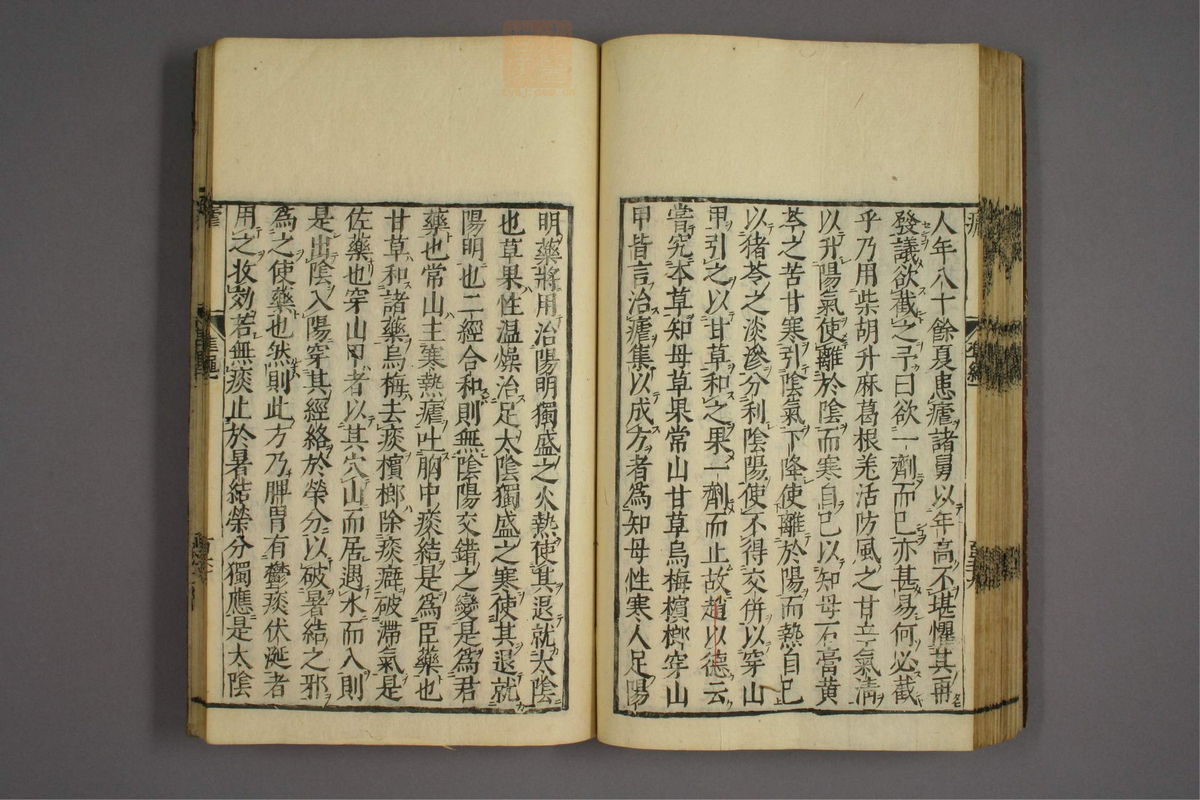 人年八十餘夏患瘧諸舅以年高不堪懼其再
發議欲截之予曰欲一劑而已亦甚易何必截
乎乃用柴胡升麻葛根羌活防風之甘辛氣清
以升陽氣使離於陰而寒自已以知母石膏黃
芩之苦甘寒引陰氣下降使離於陽而熱自已
以猪苓之淡滲分利陰陽使不得交併以穿山
甲引之以甘草和之果一劑而止故趙以德云
嘗究本草知母草果常山甘草烏梅檳榔穿山
甲皆言治瘧集以成方者為知母性寒入足陽
明藥將用治陽明獨盛之火熱使其退就太陰
也草果性温燥治足太陰獨盛之寒使其退就
陽明也二經合和則無陰陽交錯之變是為君
藥也常山主寒熱瘧吐胸中痰結是為臣藥也
甘草和諸藥烏梅去痰檳榔除痰癖破滯氣是
佐藥也穿山甲者以其穴山而居遇水而入則
是出陰入陽穿其經絡於榮分以破暑結之邪
為之使藥也然則此方乃脾胃有鬱痰伏涎者
用之收効若無痰止於暑結榮分獨應是太陰